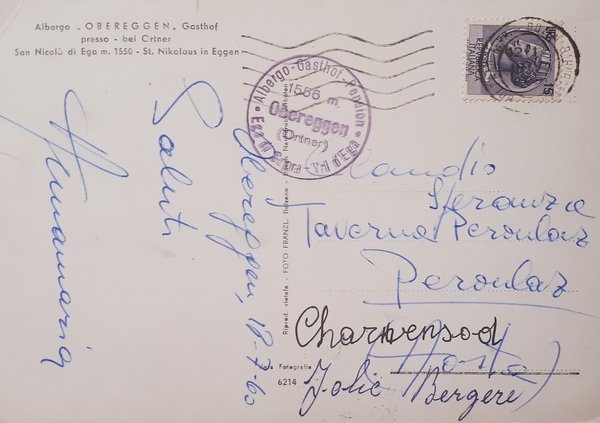 Albergo „OBEREGGEN" Gasthof
presso - bei Ortner
San Nicolò di Ega m. 1550 - St. Nikolaus in Eggen
Albergo-Gasthof-Pension
1556 m.
Obereggen
(Ortner)
Val d'Ega
ITALIANA
Obereggen, 18-7-60
Saluti
Annamaria
Riprod. vietata - FOTO FRANZL, Bolzano
Fotografia
6214
Claudio
Speranza
Taverna Peroulaz
Peroulaz
Charvensod
(Aosta)
Jolie Bergere